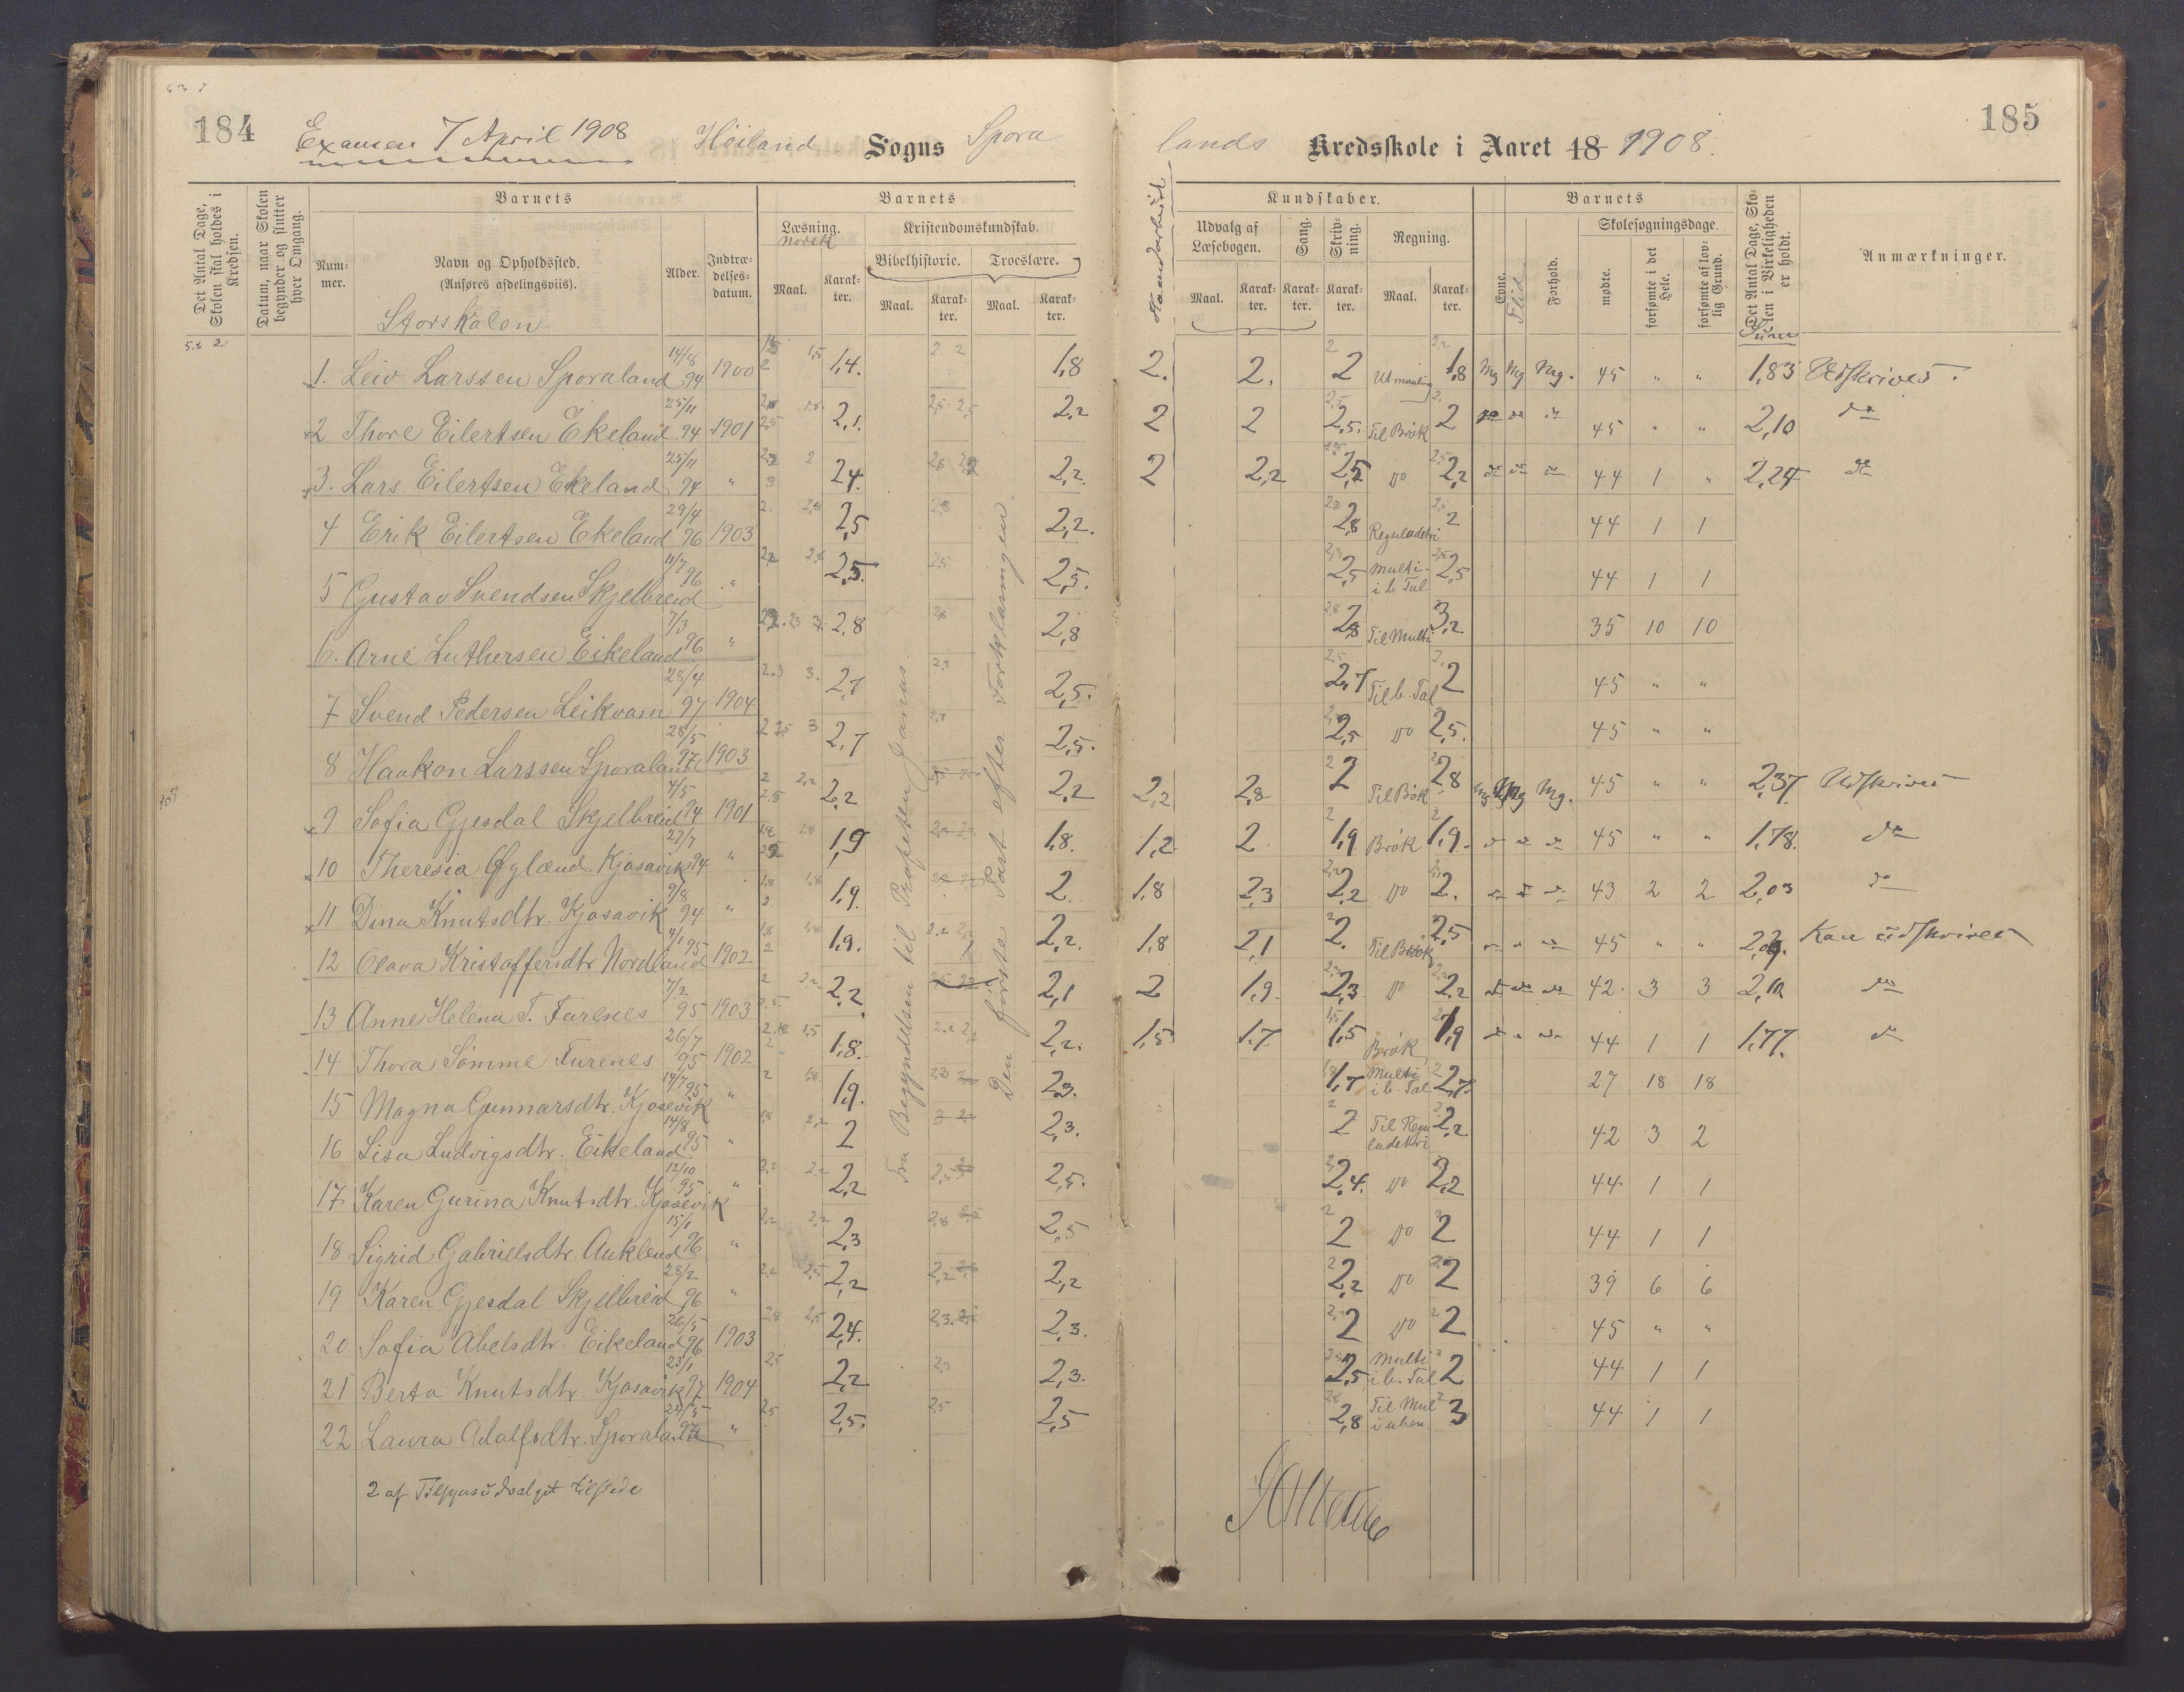 184
Examen 7 April 1908 Höiland Sogns Spora
lands Kredsskole i Aaret 18 1908.
185
Det Antal Dage, Skolen skal holdes i Kredsen.
Datum, naar Skolen begynder og slutter hver Omgang.
Barnets
Num-mer.
Navn og Opholdssted.
(Anføres afdelingsviis).
Storskolen
Alder.
Indtræ-delses-datum.
Barnets
Læsning.
norsk
Maal. Karak-ter.
Kristendomskundskab.
Bibelhistorie. Troeslære.
Maal. Karak-ter. Maal. Karak-ter.
Haandarbeid
Kundskaber.
Udvalg af Læsebogen. Sang. Skriv-ning. Regning.
Maal. Karak-ter. Karak-ter. Karak-ter. Maal. Karak-ter.
Barnets
Evne. Flid Forhold.
Skolesøgningsdage.
mødte. forsømte i det Hele. forsømte af lov-lig Grund.
Det Antal Dage, Sko-len i Virkeligheden er holdt.
Sum
Anmærkninger.
1. Leiv Larssen Sporaland 14/8 94 1900 1,4. 1,8 2. 2. 2 Utmaaling 1,8 Mg Mg Mg. 45 " " 1,83 Udskrives.
2 Thore Eilertsen Ekeland 25/11 94 1901 2,1. 2,2 2 2 2,5. Til Brök 2 do do do 45 " " 2,10 do
3. Lars Eilertsen Ekeland 25/11 94 " 2,4. 2,2. 2 2,2 2,5 do 2,2 do do do 44 1 " 2,24 do
4 Erik Eilertsen Ekeland 29/4 96 1903 2,5 2,2. 2,8 Reguladetri 2 44 1 1
5 Gustav Svendsen Skjelbreid 11/7 96 " 2,5. 2,5. 2,5 Multi- i b. Tal 2,5 44 1 1
6. Arne Luthersen Eikeland 7/3 96 " 2,8 2,8 2,8 Til Multi 3,2 35 10 10
7 Svend Pedersen Leikvam 28/4 97 1904 2,7 2,5. 2,7 Til b. Tal 2 45 " "
8 Haakon Larssen Sporaland 28/5 97 1903 2,7 2,5. 2,5 do 2,5. 45 " "
9 Sofia Gjesdal Skjelbreid 4/5 94 1901 2,2 2,2 2,2 2,8 2 Til Brök 2,8 Mg Mg Mg. 45 " " 2,37. Udskrives
10 Theresia Öglænd Kjosavik 27/7 94 " 1,9 1,8. 1,2 2 1,9 Brök 1,9. do do do 45 " " 1,78. do
11 Dina Knutsdtr. Kjosavik 9/8 94 " 1,9. 2. 1,8 2,3 2,2 do 2. do do do 43 2 2 2,03 do
12 Olava Kristoffersdtr Nordland 4/1 95 1902 1,9. 2,2. 1,8 2,1 2. Til Brök 2,5 45 " " Kan udskrives
13 Anne Helena T. Furenes 7/2 95 1903 2,2 2,1 2 1,9. 2,3 do 2,2 do do do 42. 3 3 do
14 Thora Sömme Furenes 26/7 95 1902 1,8. 2,2. 1,5 1,7 1,5 Brök 1,9 44 1 1 1,77. do
15 Magna Gunnarsdtr. Kjosevik 14/7 95 " 1,9. 2,3. 1,7 Multi i b Tal 2,7. 27 18 18
16 Lisa Ludvigsdtr. Eikeland 14/8 95 " 2 2,3. 2 Til Regu ladetri 2,2 42 3 2
17 Karen Gurina Knutsdtr. Kjosevik 12/10 95 " 2,2 2,5. 2,4. do 2,2 44. 1 1
18 Sigrid Gabrielsdtr. Auklend 15/1 96 " 2,3 2,5 2 do 2 44 1 1
19 Karen Gjesdal Skjelbreid 28/2 96 " 2,2 2,2 2,2 do 2 39 6 6
20 Sofia Abelsdtr. Eikeland 26/5 96 1903 2,4. 2,3. 2 do 2 45 " "
21 Berta Knutsdtr. Kjosavik 23/1 97 1904 2,2 2,3. 2,5 Multi i b. Tal 2 44 1 1
22 Laura Adolfsdtr. Sporaland 97 " 2,5. 2,5 2,8 Til Mul i uben. 3 44 1 1
Fra Begyndelsen til Profeten Jonas.
Den förste Part efter Forklaringen
2 af Tilsynsudvalget tilstede